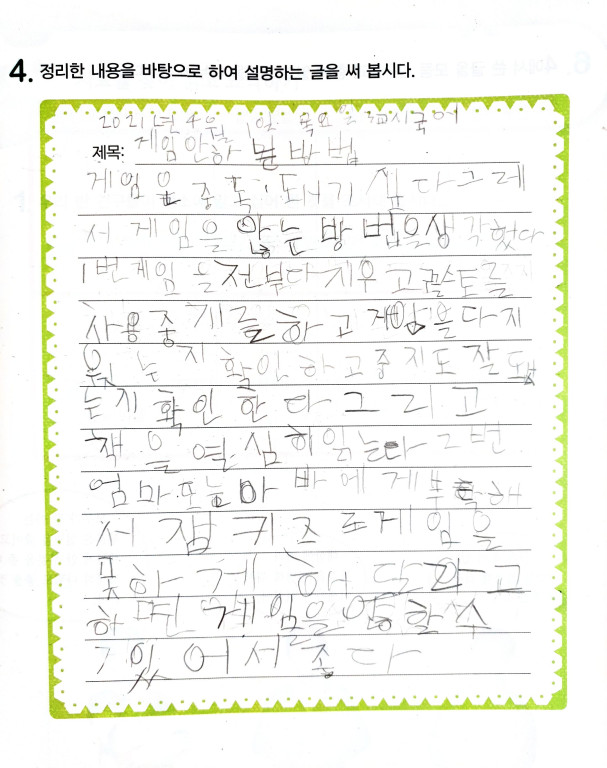 4. 정리한 내용을 바탕으로 하여 설명하는 글을 써 봅시다.
2021년 4월 1일 목요일 3교시국어
제목: 게임안하는 방법
게임은 중독되기 쉽다그레
서 게임을 않는 방법을생각했다
1번게임을전부다지우고골스토를
사용중기를하고게임을다지
웠는지확인하고중지도잘됐
는지확인한다그리고
책을열심히읽는다 2번
엄마또는아바에게부탁해
서잽키즈로게임을
못하게해달라고
하면게임을안할수
가있어서좋다